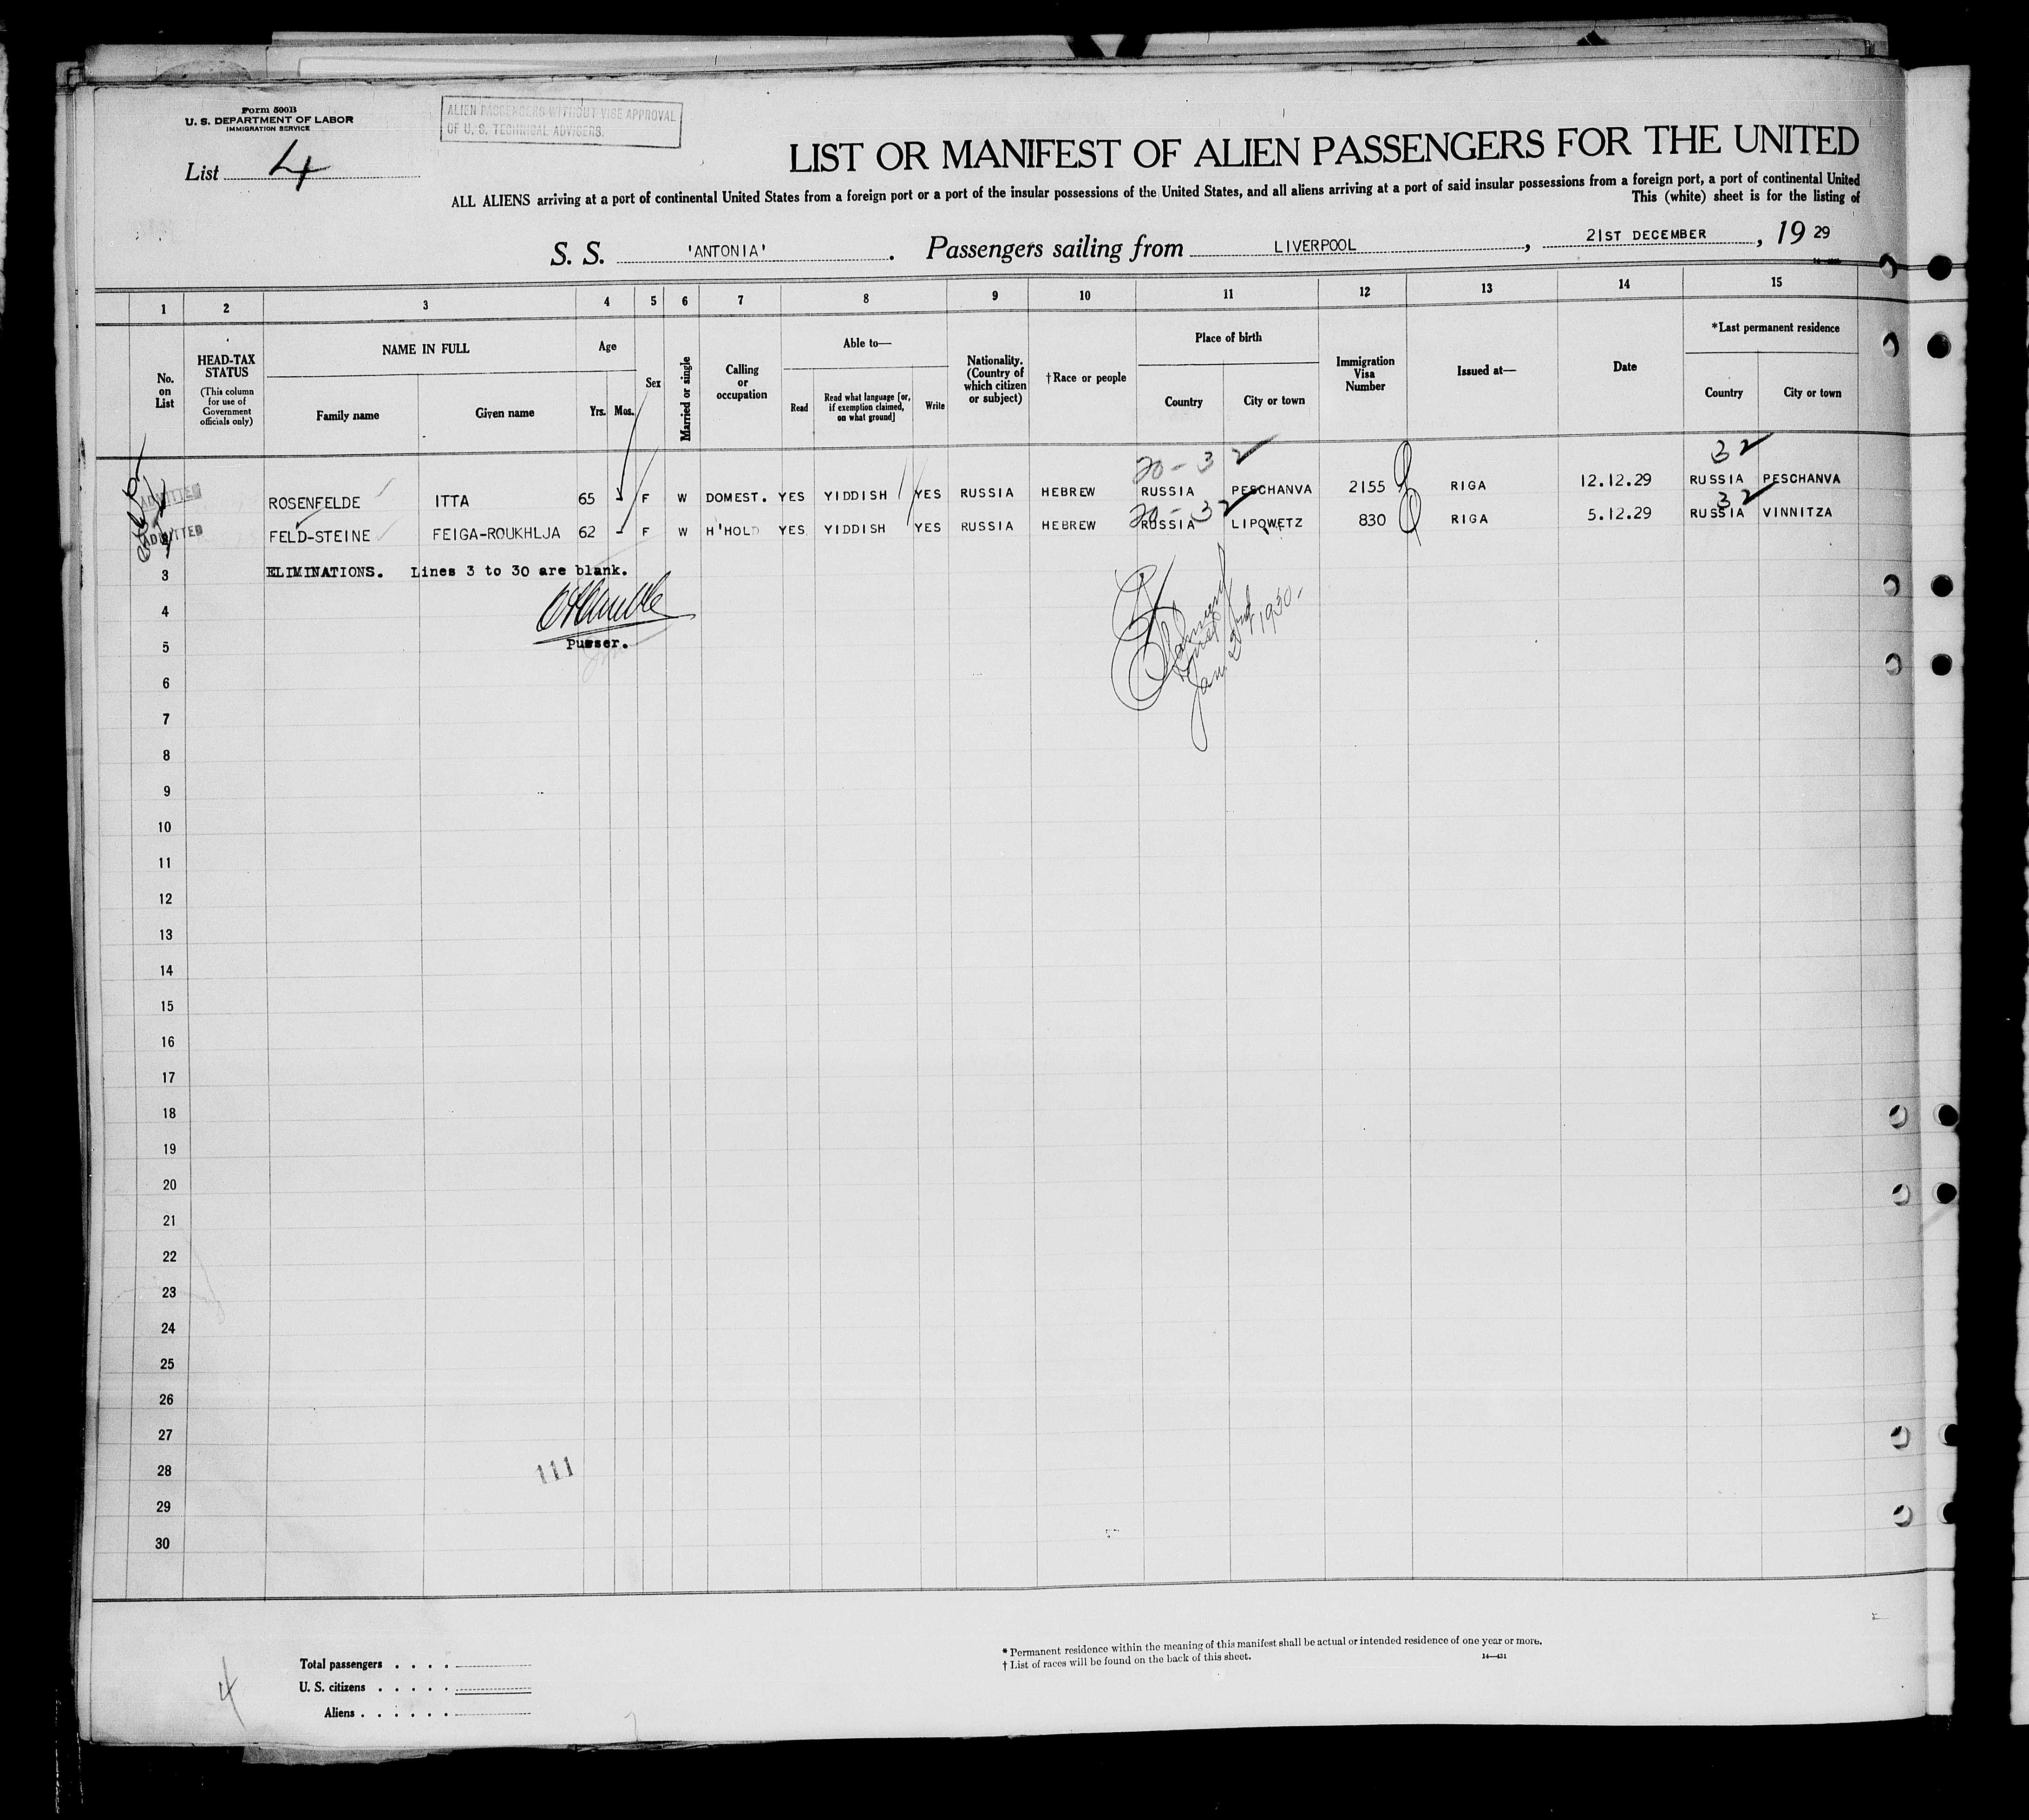 Form 500B
U. S. DEPARTMENT OF LABOR
IMMIGRATION SERVICE
ALIEN PASSENGERS WITHOUT VISE APPROVAL
OF U. S. TECHNICAL ADVISERS.
List 4
LIST OR MANIFEST OF ALIEN PASSENGERS FOR THE UNITED
ALL ALIENS arriving at a port of continental United States from a foreign port or a port of the insular possessions of the United States, and all aliens arriving at a port of said insular possessions from a foreign port, a port of continental United
This (white) sheet is for the listing of
S. S. 'ANTONIA'. Passengers sailing from LIVERPOOL, 21ST DECEMBER, 19 29
1 2 3 4 5 6 7 8 9 10 11 12 13 14 15
No. on List
HEAD-TAX STATUS
(This column for use of Government officials only)
NAME IN FULL
Family name
Given name
Age
Yrs. Mos.
Sex
Married or single
Calling or occupation
Able to—
Read
Read what language [or, if exemption claimed, on what ground]
Write
Nationality. (Country of which citizen or subject)
†Race or people
Place of birth
Country
City or town
Immigration Visa Number
Issued at—
Date
*Last permanent residence
Country
City or town
20-32 32
ADMITTED ROSENFELDE ITTA 65 - F W DOMEST. YES YIDDISH YES RUSSIA HEBREW RUSSIA PESCHANVA 2155 RIGA 12.12.29 RUSSIA PESCHANVA
20-32 32
ADMITTED FELD-STEINE FEIGA-ROUKHLJA 62 - F W H'HOLD YES YIDDISH YES RUSSIA HEBREW RUSSIA LIPOWETZ 830 RIGA 5.12.29 RUSSIA VINNITZA
3 ELIMINATIONS. Lines 3 to 30 are blank.
4
5 Purser.
Jan 2nd 1930-
6
7
8
9
10
11
12
13
14
15
16
17
18
19
20
21
22
23
24
25
26
27
28 111
29
30
* Permanent residence within the meaning of this manifest shall be actual or intended residence of one year or more.
† List of races will be found on the back of this sheet.
14—431
Total passengers . . . .
U. S. citizens . . . . .
Aliens . . . . . .
4